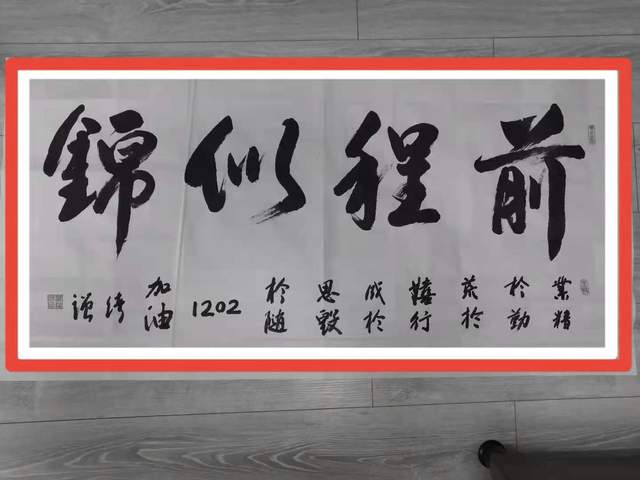 前程似錦
業精
於勤
荒於
嬉行
成於
思毀
於隨
1202
加油